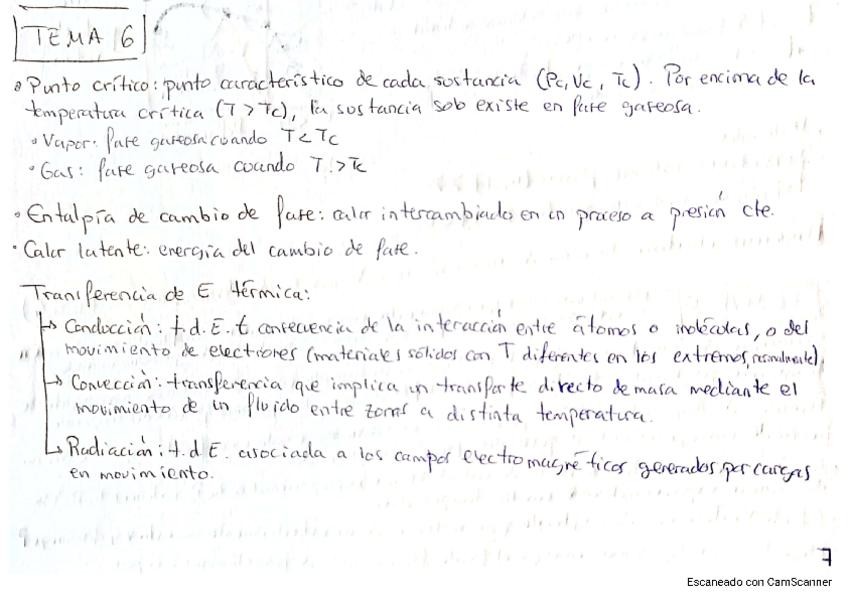 TEMA 6
• Punto crítico: punto característico de cada sustancia (Pc, Vc, Tc). Por encima de la
temperatura crítica (T > Tc), la sustancia solo existe en fase gaseosa.
• Vapor: fase gaseosa cuando T < Tc
• Gas: fase gaseosa cuando T > Tc
• Entalpía de cambio de fase: calor intercambiado en un proceso a presión cte.
• Calor latente: energía del cambio de fase.
Transferencia de E térmica:
→ Conducción: t.d.E.t consecuencia de la interacción entre átomos o moléculas, o del
movimiento de electrones (materiales sólidos con T diferentes en los extremos, normalmente).
→ Convección: transferencia que implica un transporte directo de masa mediante el
movimiento de un fluido entre zonas a distinta temperatura.
→ Radiación: t.d.E. asociada a los campos electromagnéticos generados por cargas
en movimiento.
7
Escaneado con CamScanner